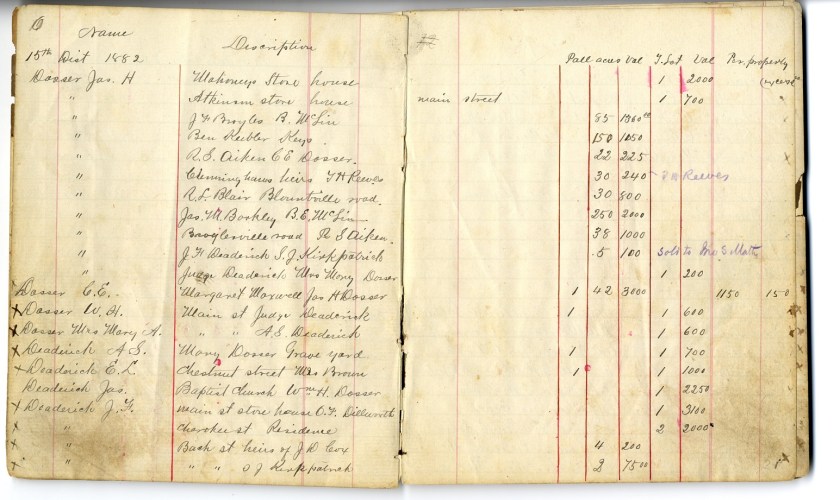 6 Name Description
15th Dist 1882 Poll acres Val T. Lot Val Per. property
Dosser Jas. H Mahoneys Store house 1 2000
" Atkinson store house main street 1 700
" J F Broyles B. McLin 85 1360
" Ben Keebler Keys 150 1050
" R. S. Aiken C E Dosser. 22 225
" Cunninghams heirs T H Reeves 30 240 Reeves
" R. L. Blair Blountville road. 30 800
" Jas. M. Barkley B. E. McLin 250 2000
" Broylesville road R S Aiken. 38 1000
" J. F Deaderick S. J. Kirkpatrick .5 100 Sold to
" Judge Deaderick Mrs Mary Dosser 1 200
Dosser C. E. Margaret Maxwell Jas H Dosser 1 42 3000 1150 150
x Dosser W. H. Main st Judge Deaderick 1 1 600
x Dosser Mrs Mary A. " " A. S. Deaderick 1 600
x Deaderick A. S. Mary Dosser Grave yard 1 1 700
x Deaderick E. L. Chestnut street Mrs Brown 1 1 1000
Deaderick Jas. Baptist Church Wm H. Dosser 1 2250
x Deaderick J. F. main st store house 1 3100
x " Cherokee st Residence 2 2000
x " Back st heirs of J. D Cox 4 200
x " " " S J Kirkpatrick 2 7500